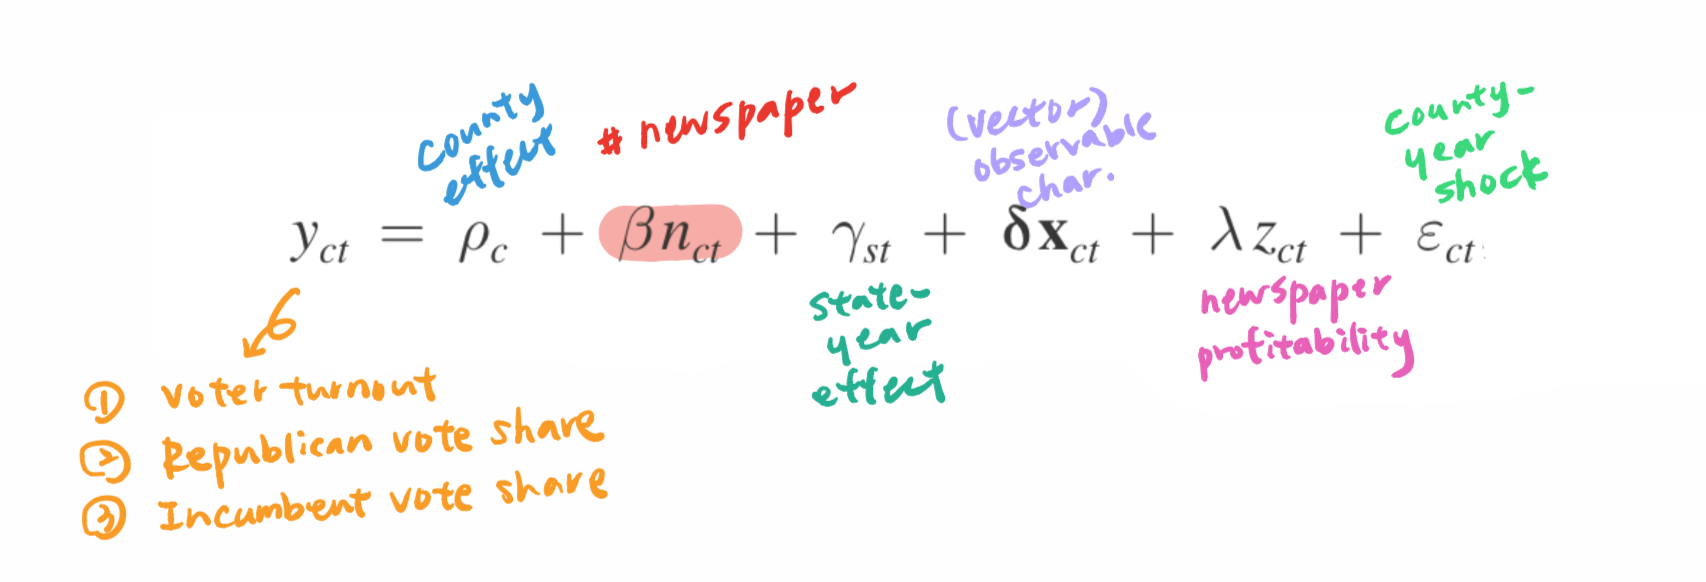 county
effect
# newspaper
(vector)
observable
char.
county-
year
shock
y_ct = ρ_c + βn_ct + γ_st + δx_ct + λz_ct + ε_ct
state-
year
effect
newspaper
profitability
① voter turnout
② Republican vote share
③ Incumbent vote share